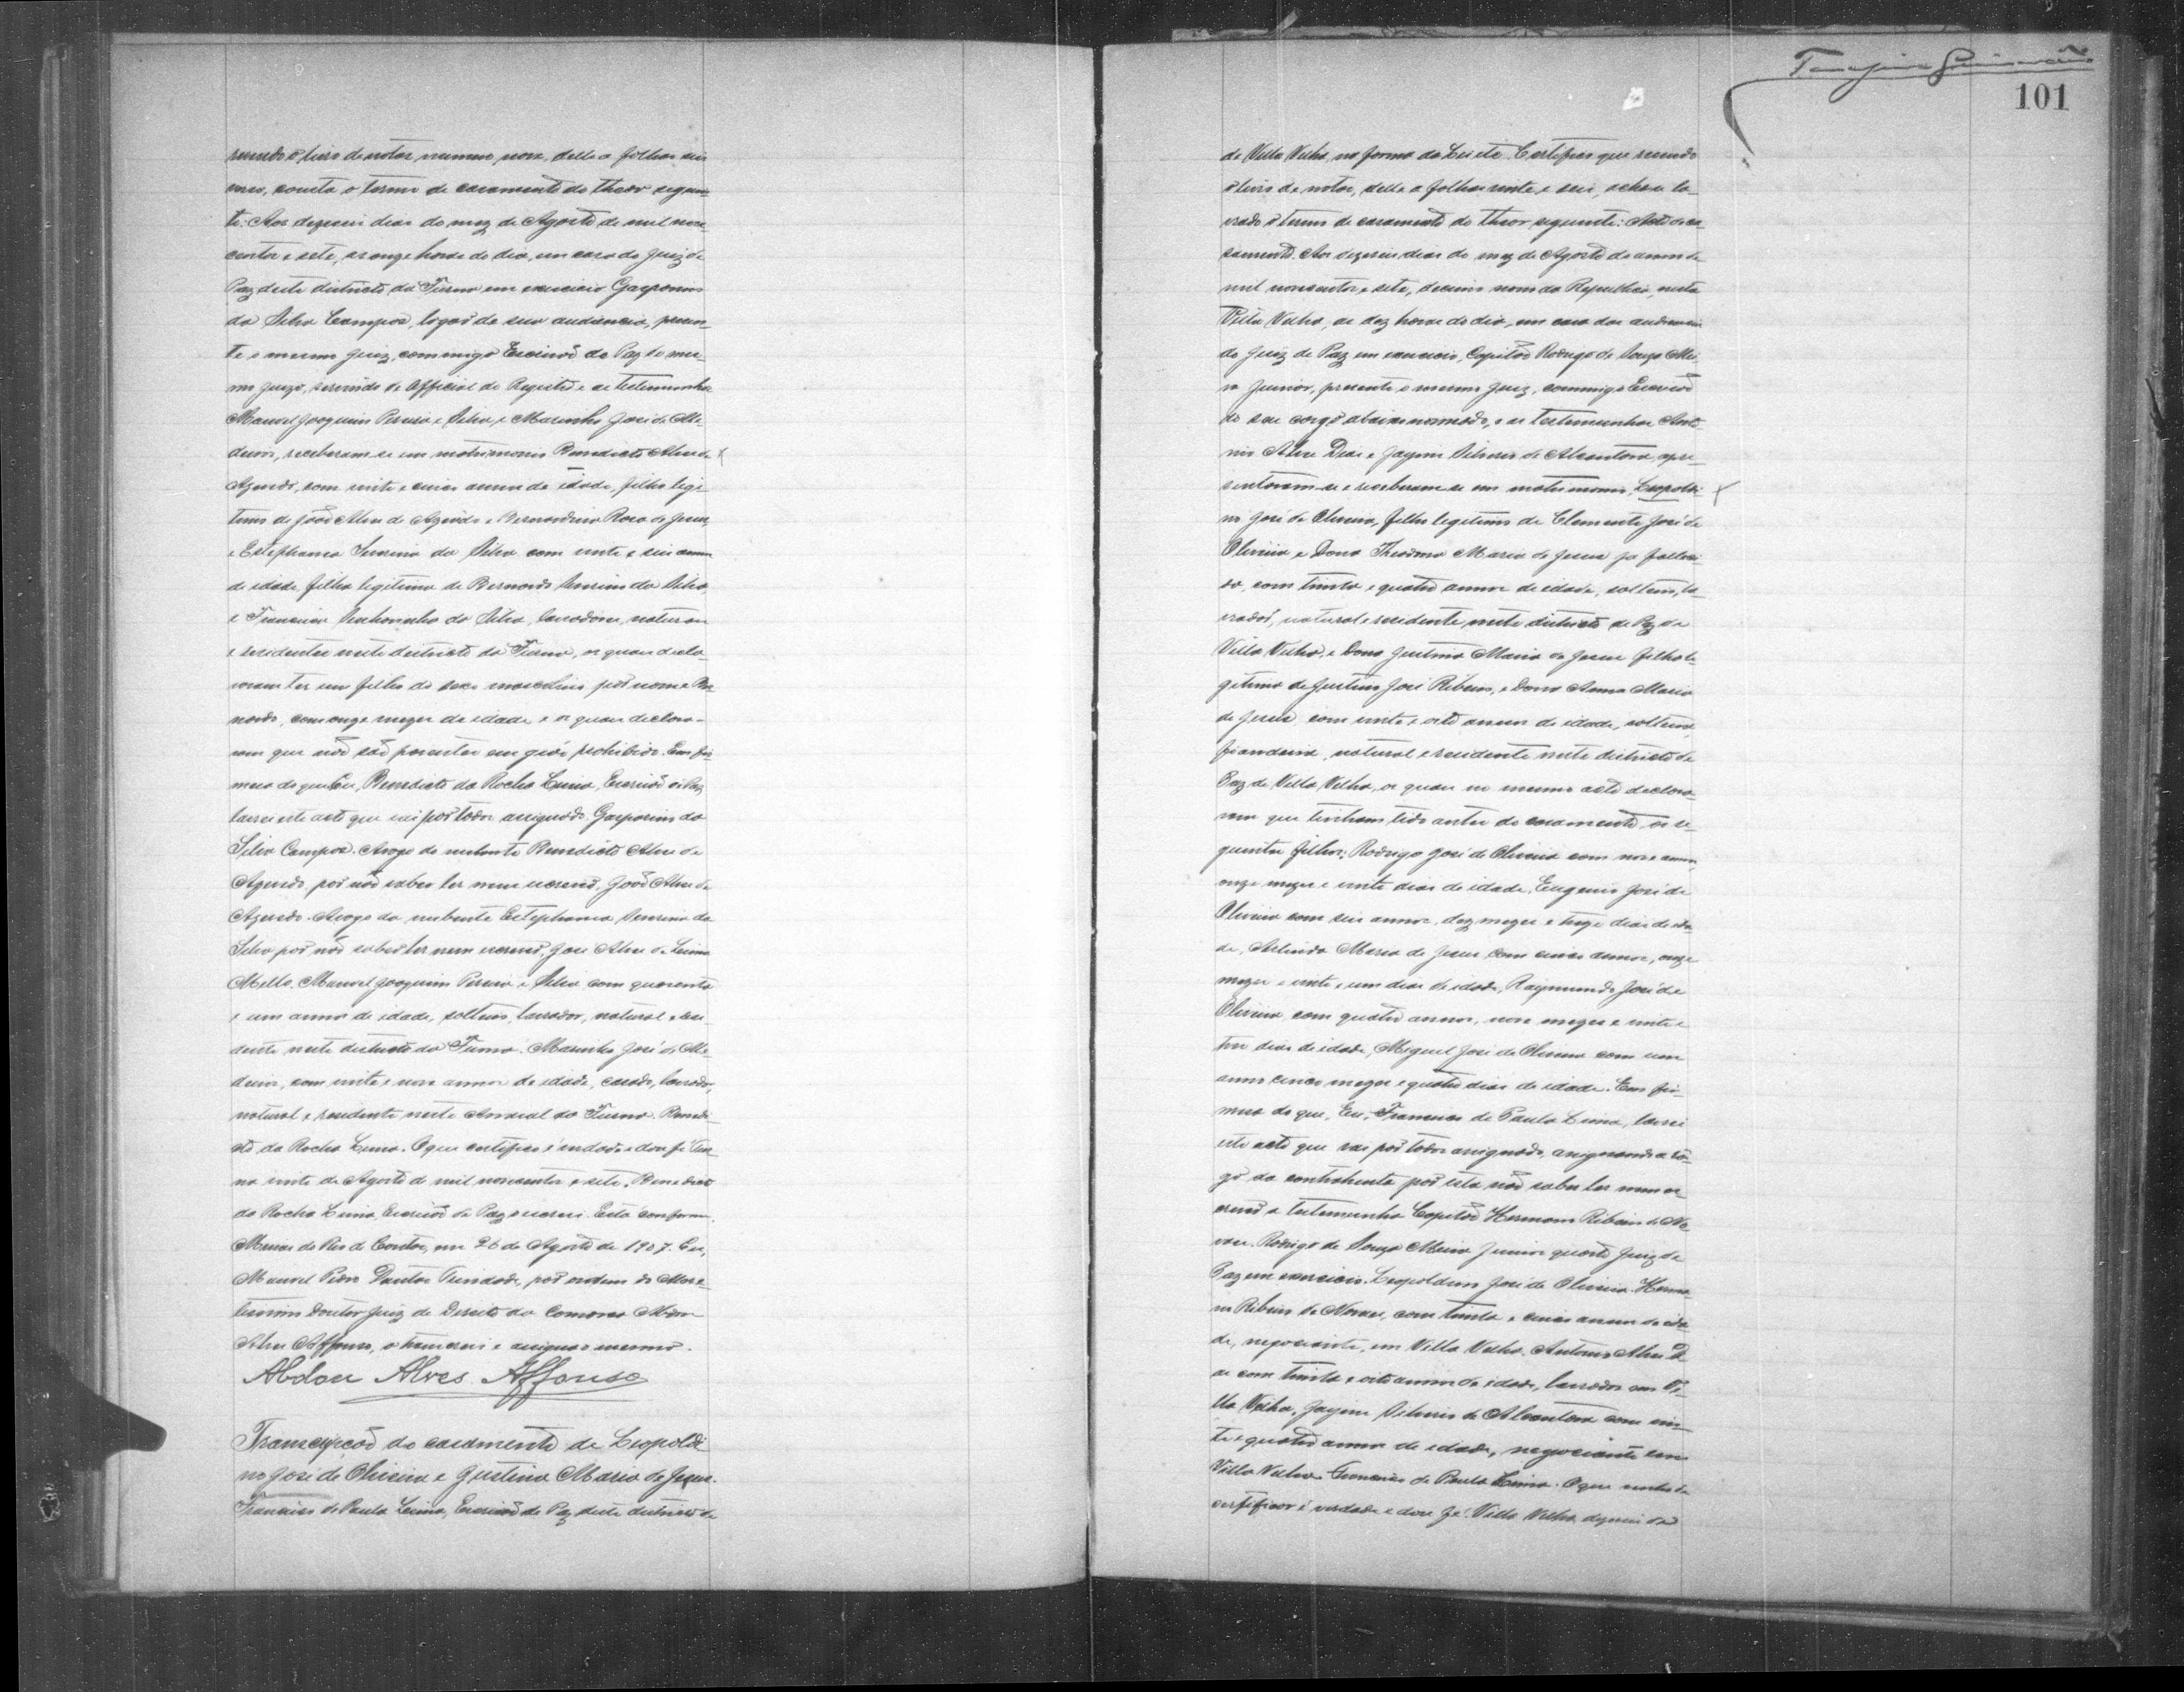 revendo o livro de notas numero nove, delle a folhas seis
verso, consta o termo de casamento do theor seguin-
te: Aos dezeseis dias do mez de Agosto de mil nove
centos e sete, as onze horas do dia, em casa do Juiz de
Paz deste districto da Furna em exercicio Gasparino
da Silva Campos, logar de sua audiencia, presen-
te o mesmo Juiz, commigo Escrivão de Paz do mes-
mo Juizo, servindo de Official do Registro e as testemunhas
Manoel Joaquim Pereira e Silva, e Marinho José de Me-
deiros, receberam-se em matrimonio Benedicto Alves de
Azevedo, com vinte e cinco annos de idade, filho legi-
timo de João Alves de Azevedo e Bernardina Rosa de Jesus,
e Estephania Severina da Silva com vinte e seis annos
de idade, filha legitima de Bernardo Severino da Silva,
e Francisca da Silva, lavradores, naturaes
e residentes neste districto da Furna, os quaes decla-
raram ter um filho do sexo masculino por nome Ber-
nardo, com onze mezes de idade e os quaes declara-
ram que não são parentes em gráo prohibido. Em fir-
meza do que Eu, Benedicto da Rocha Lima, Escrivão de Paz
lavrei este acto que vai por todos assignado. Gasparino da
Silva Campos. Arogo do nubente Benedicto Alves de
Azevedo, por não saber ler nem escrever, João Alves de
Azevedo. Arogo da nubente Estephania Severina da
Silva por não saber ler nem escrever, José Alves de Lima
Mello. Manoel Joaquim Pereira e Silva com quarenta
e um annos de idade, solteiro, lavrador, natural e resi-
dente neste districto da Furna. Marinho José de Me-
deiros, com vinte e nove annos de idade, casado, lavrador,
natural e residente neste Arraial da Furna. Benedi-
cto da Rocha Lima. O que certifico é verdade e dou fé. Fur-
na vinte de Agosto de mil novecentos e sete. Benedicto
da Rocha Lima, Escrivão de Paz escrevi. Está conforme.
Minas do Rio de Contas, em 26 de Agosto de 1907. Eu,
Manoel Pedro Dantas Trindade, por ordem do Mere-
tissimo Doutor Juiz de Direito da Comarca Abdon
Alves Affonso, o transcrevi e assigna o mesmo.
Abdon Alves Affonso
Transcripção do casamento de Leopoldi-
no José de Oliveira e Justina Maria de Jesus.
Francisco de Paula Lima, Escrivão de Paz deste districto de
101
de Villa Velha, na forma da Lei etc. Certifico que revendo
o livro de notas, delle a folhas vinte e seis, achou la-
vrado o termo de casamento do theor seguinte: Acto de ca-
samento. Aos dezeseis dias do mez de Agosto do anno de
mil novecentos e sete, decimo nono da Republica, nesta
Villa Velha, as dez horas do dia, em casa das audiencias
do Juiz de Paz em exercicio, Capitão Rodrigo de Souza Mei-
ra Junior, presente o mesmo Juiz, commigo Escrivão
do seu cargo abaixo nomeado, e as testemunhas Anto-
nio Alves Dias e Jayme Silverio de Alcantara, apre-
sentaram-se e receberam-se em matrimonio, Leopoldi-
no José de Oliveira, filho legitimo de Clemente José de
Oliveira e Dona Theodora Maria de Jesus já falleci-
da, com trinta e quatro annos de idade, solteiro, la-
vrador, natural e residente neste districto de Paz de
Villa Velha, e Dona Justina Maria de Jesus filha le-
gitima de Justino José Ribeiro, e Dona Anna Maria
de Jesus com vinte e oito annos de idade, solteira,
fiandeira, natural e residente neste districto de
Paz de Villa Velha, os quaes no mesmo acto declara-
ram que tinham tido antes do casamento, os se-
guintes filhos: Rodrigo José de Oliveira com nove annos,
onze mezes e vinte dias de idade, Eugenio José de
Oliveira com seis annos, dez mezes e treze dias de ida-
de, Arlinda Maria de Jesus com cinco annos, onze
mezes e vinte e um dias de idade, Raymundo José de
Oliveira com quatro annos, nove mezes e vinte e
tres dias de idade, Miguel José de Oliveira com um
anno cinco mezes e quatro dias de idade. Em fir-
meza do que, Eu, Francisco de Paula Lima, lavrei
este acto que vai por todos assignado, assignando a ro-
go da contrahente por esta não saber ler nem es-
crever a testemunha Capitão Hermano Ribeiro de No-
vaes. Rodrigo de Souza Meira Junior quarto Juiz de
Paz em exercicio. Leopoldino José de Oliveira. Herma-
no Ribeiro de Novaes, com trinta e cinco annos de ida-
de, negociante, em Villa Velha. Antonio Alves Di-
as com trinta e oito annos de idade, lavrador em Vi-
lla Velha. Jayme Silverio de Alcantara com vin-
te e quatro annos de idade, negociante em
Villa Velha. Francisco de Paula Lima. O que venho de
certificar é verdade e dou fé. Villa Velha, dezeseis de